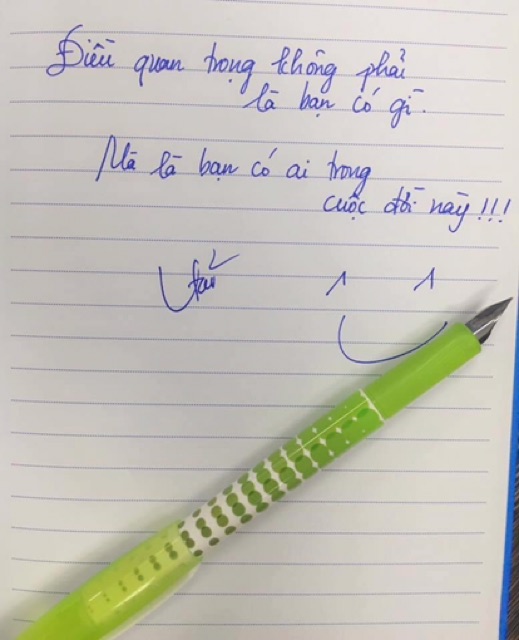 Điều quan trọng không phải
là bạn có gì.
Mà là bạn có ai trong
cuộc đời này!!!